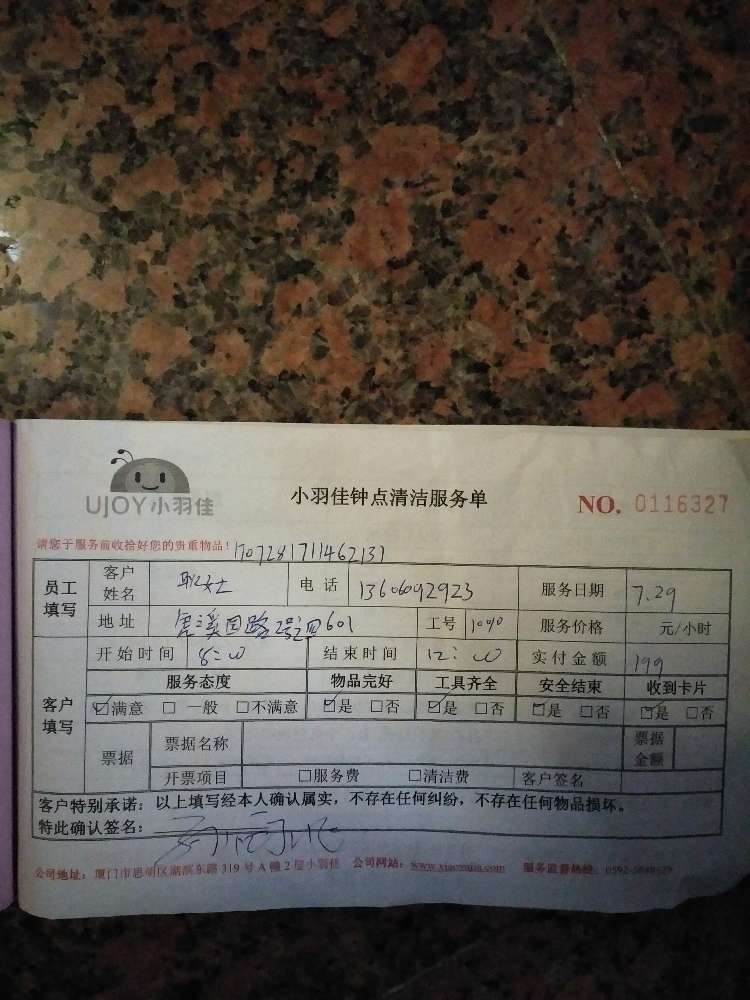 UJOY小羽佳
小羽佳钟点清洁服务单
NO. 0116327
请您于服务前收拾好您的贵重物品!
员工填写 客户姓名 女士 电话 13606092923 服务日期 7.29
地址 2号 601 工号 1090 服务价格 元/小时
客户填写 开始时间 8:00 结束时间 12:00 实付金额 199
服务态度 物品完好 工具齐全 安全结束 收到卡片
☑满意 □一般 □不满意 ☑是 □否 ☑是 □否 ☑是 □否 ☑是 □否
票据 票据名称 票据金额
开票项目 □服务费 □清洁费 客户签名
客户特别承诺：以上填写经本人确认属实，不存在任何纠纷，不存在任何物品损坏。
特此确认签名：
公司地址：厦门市思明区湖滨东路319号A幢2层小羽佳 公司网站： 服务监督热线：